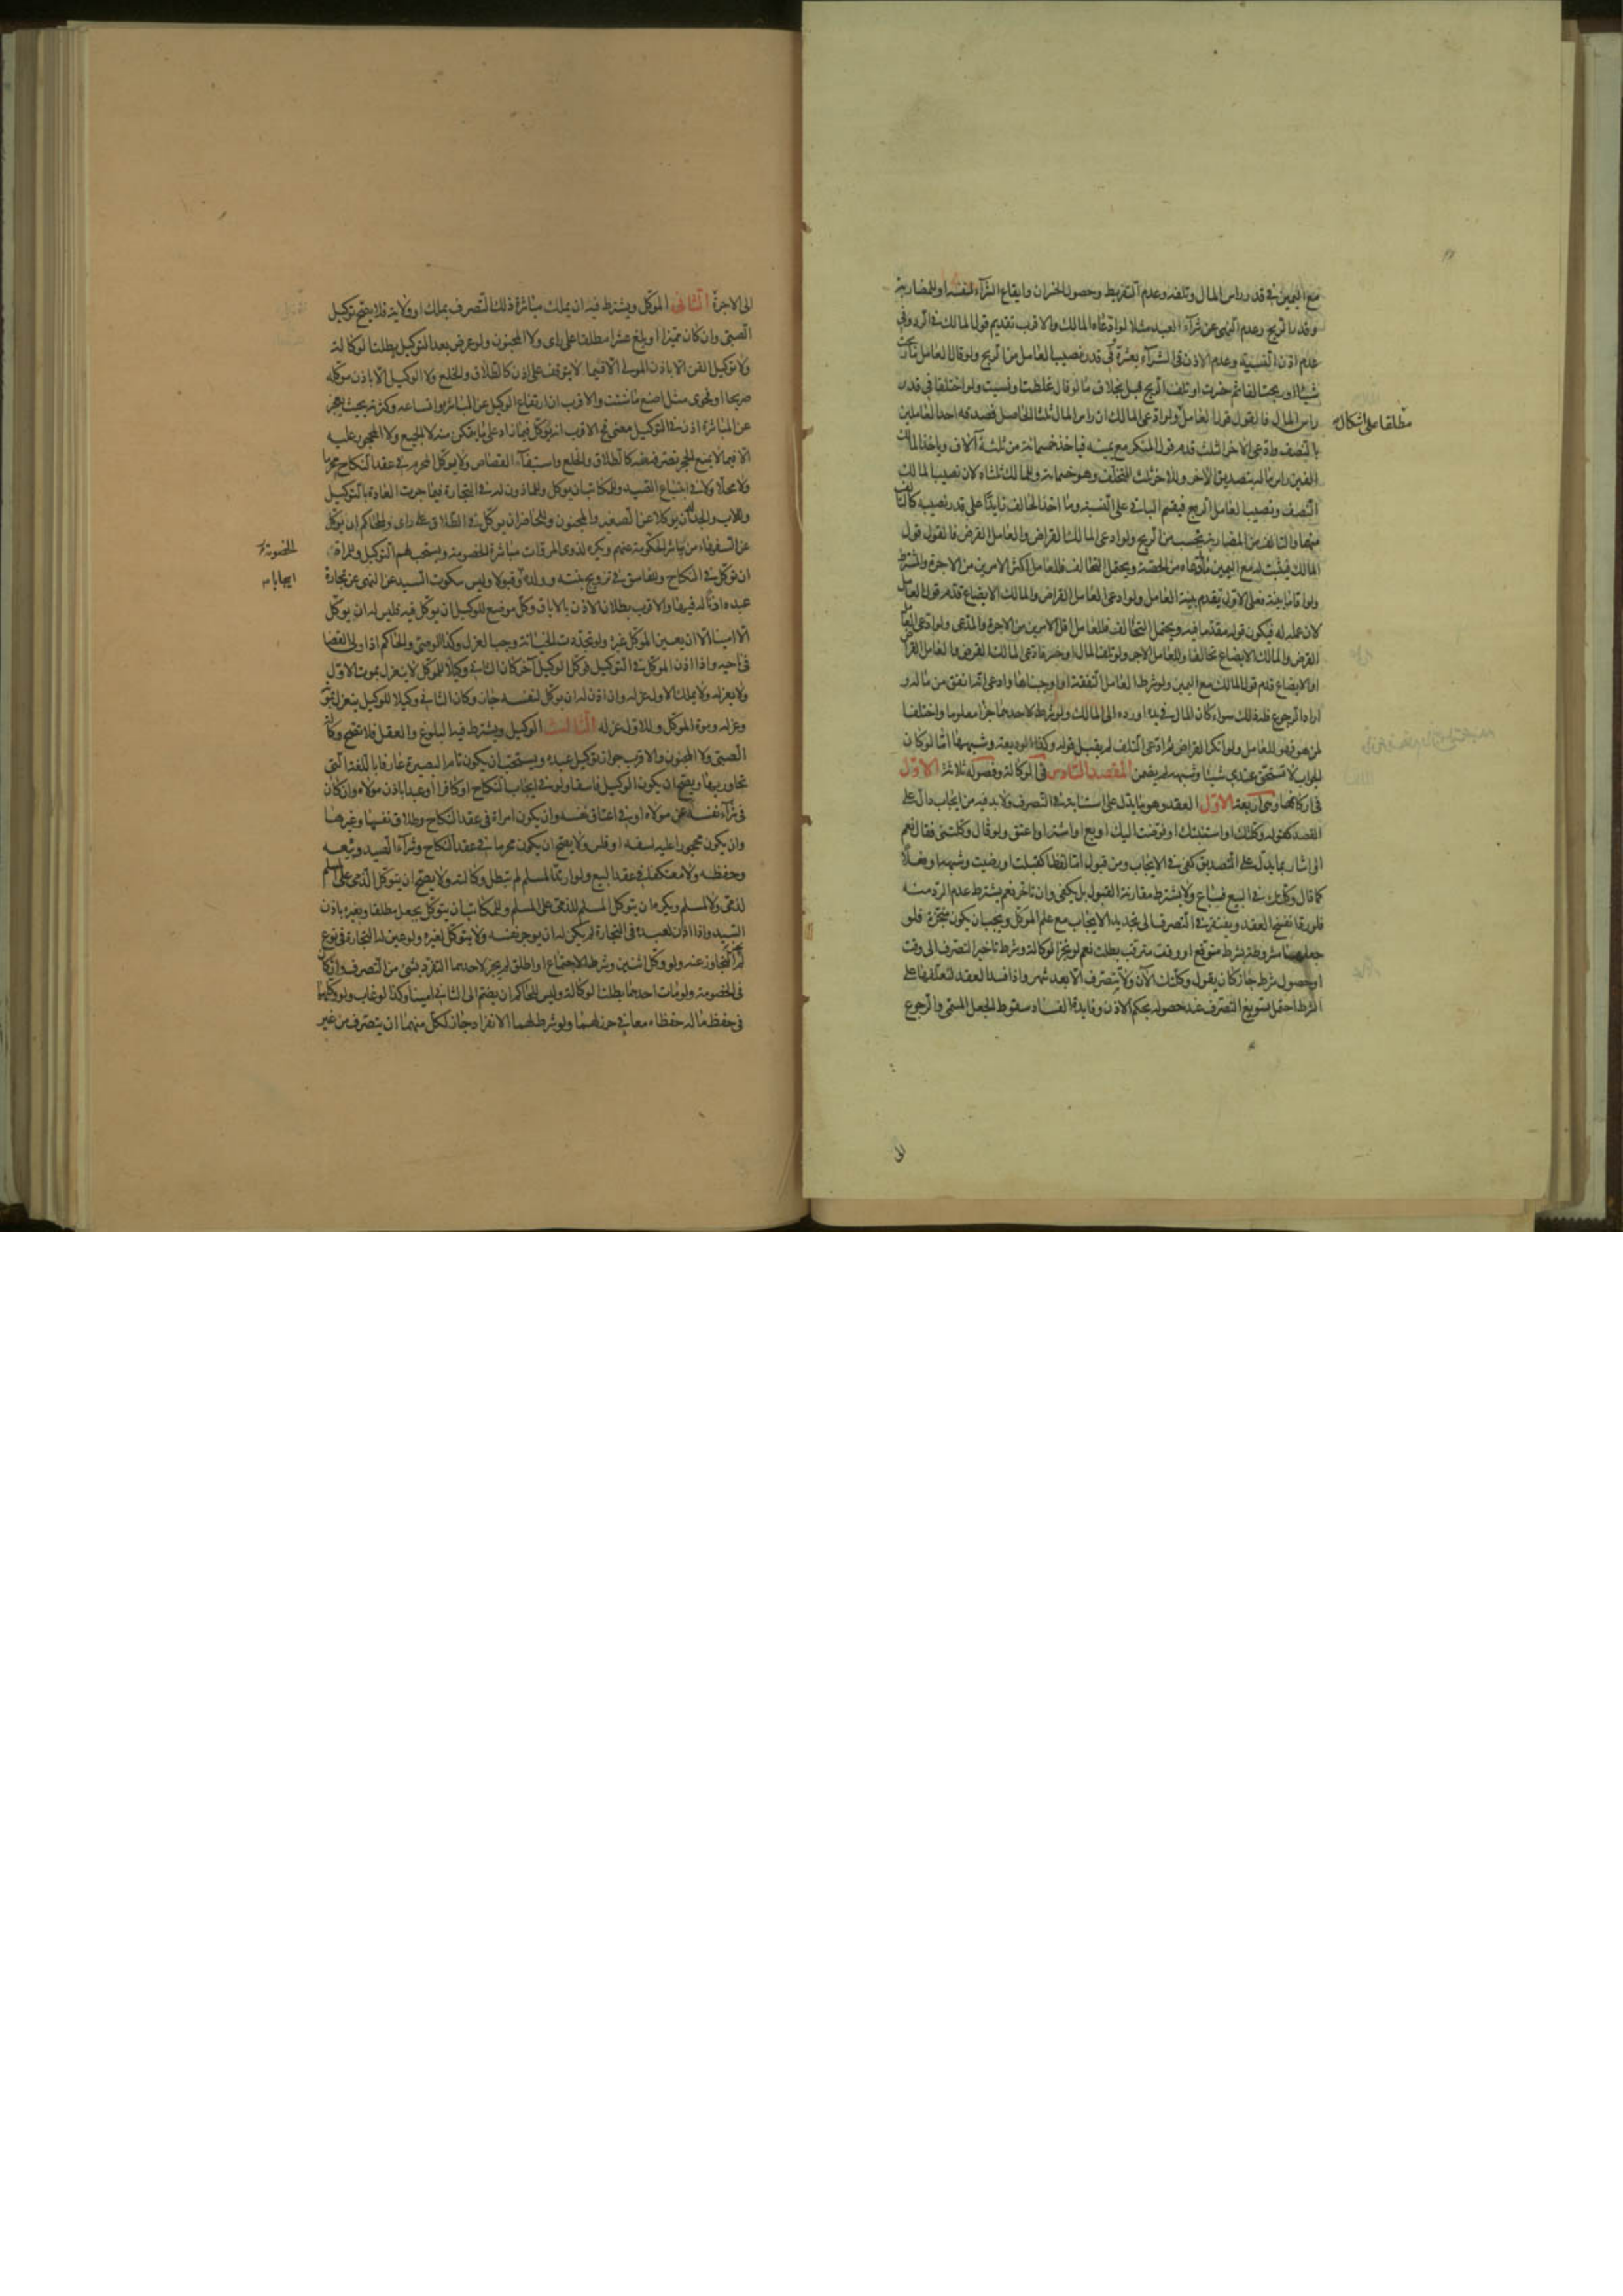 مع اليمين في قدر راس المال وتلفه وعدم التفريط وحصول الخسران وايقاع الشرآء لنفسه او للمضاربة
وقدر الربح وعدم النهى عن شرآء العبد مثلا لو ادعاه المالك والاقرب تقديم قول المالك في الرد وفي
عدم اذن النسية وعدم الاذن في الشرآء بعشرة وفي قدر نصيب العامل من الربح ولو قال العامل ما ربحت
شيئا او ربحت الفا ثم خسرت او تلف الربح قبل بخلاف ما لو قال غلطت او نسيت ولو اختلفا في قدر
راس المال فالقول قول العامل ولو ادعى المالك ان راس المال ثلثا الحاصل فصدقه احد العاملين
مطلقا على اشكال
بالنصف وادعى الاخر الثلث قدم قول المنكر مع يمينه فياخذ خمسمائة من ثلثة آلاف وياخذ المالك
الفين راس ماله بتصديق الاخر وللاخر ثلث المتخلف وهو خمسمائة وللمالك ثلثاه لان نصيب المالك
النصف ونصيب العامل الربع فيقسم الباقي على النسبة وما اخذ الحالف زايدا على قدر نصيبه كالتالف
منهما والتالف من المضاربة يحسب من الربح ولو ادعى المالك القراض والعامل القرض فالقول قول
المالك فيثبت له مع اليمين ما ادعاه من الحصة ويحتمل التحالف فللعامل اكثر الامرين من الاجرة والمشترط
ولو اقاما بينة فعلى الاول تقدم بينة العامل ولو ادعى العامل القراض والمالك الابضاع قدم قول العامل
لان عمله له فيكون قوله مقدما فيه ويحتمل التحالف فللعامل اقل الامرين من الاجرة والمدعى ولو ادعى العامل
القرض والمالك الابضاع تحالفا وللعامل الاجر ولو تلف المال او خسر فادعى المالك القرض والعامل القراض
او الابضاع قدم قول المالك مع اليمين ولو شرط العامل النفقة او اوجبناها وادعى انه انفق من ماله و
اراد الرجوع فله ذلك سواء كان المال في يده او رده الى المالك ولو شرط لاحدهما جزا معلوما واختلفا
لمن هو فهو للعامل ولو انكر القراض ثم ادعى التلف لم يقبل قوله وكذا الوديعة وشبهها اما لو كان
الجواب لا تستحق عندي شيئا وشبهه لم يضمن المقصد السادس في الوكالة وفصوله ثلاثة الاول
في اركانها وهي اربعة الاول العقد وهو ما يدل على استنابة في التصرف ولابد فيه من ايجاب دال على
القصد كقوله وكلتك او استنبتك او فوضت اليك او بع او اشتر او اعتق ولو قال وكلتني فقال نعم
او اشار بما يدل على التصديق كفى في الايجاب ومن قبول اما لفظا كقبلت او رضيت وشبهه او فعلا
كما قال وكلتك في البيع فباع ولا يشترط مقارنة القبول بل يكفى وان تاخر نعم يشترط عدم الرد منه
فلو رد انفسخ العقد ويفتقر في التصرف الى تجديد الايجاب مع علم الموكل ويجب ان يكون منجزة فلو
جعلها مشروطة بشرط متوقع او وقت مترقب بطلت نعم لو نجز الوكالة وشرط تاخير التصرف الى وقت
او حصول شرط جاز كان يقول وكلتك الآن ولا تتصرف الا بعد شهر واذا فسد العقد لتعلقها على
الشرط احتمل تسويغ التصرف عند حصوله بحكم الاذن وفايدة الفساد سقوط الجعل المسمى والرجوع
الى
الى الاجرة الثاني الموكل ويشترط فيه ان يملك مباشرة ذلك التصرف بملك او ولاية فلا يصح توكيل
الصبى وان كان مميزا او بلغ عشرا مطلقا على راى ولا المجنون ولو عرض بعد التوكيل بطلت الوكالة
ولا توكيل القن الا باذن المولى الا فيما لا يتوقف على اذن كالطلاق والخلع ولا الوكيل الا باذن موكله
صريحا او فحوى مثل اصنع ما شئت والاقرب ان ارتفاع الوكيل عن المباشرة واتساعه وكثرته بحيث يعجز
عن المباشرة اذن في التوكيل معنى ثم الاقرب انه يوكل فيما زاد على ما يتمكن منه لا الجميع ولا المحجور عليه
الا فيما لا يمنع الحجر تصرفه فيه كالطلاق والخلع واستيفآء القصاص ولا يوكل المحرم في عقد النكاح محرما
ولا محلا ولا في ابتياع الصيد وللمكاتب ان يوكل وللماذون له في التجارة فيما جرت العادة بالتوكيل
وللاب والجد ان يوكلا عن الصغير والمجنون وللحاضر ان يوكل في الطلاق على راى وللحاكم ان يوكل
عن السفهاء من يباشر الحكومة عنهم ويكره لذوى المروات مباشرة الخصومة ويستحب لهم التوكيل وللمراة
الخصومة
ان توكل في النكاح وللفاسق في تزويج بنته وولده وقبولا وليس سكوت السيد عن النهى عن تجارة
ايجابا
عبده اذنا له فيها والاقرب بطلان الاذن بالاباق وكل موضع للوكيل ان يوكل فيه فليس له ان يوكل
الا امينا الا ان يعين الموكل غيره ولو تجددت الخيانة وجب العزل وكذا الوصي والحاكم اذا ولى القضا
في ناحية واذا اذن الموكل في التوكيل فوكل الوكيل آخر كان الثاني وكيلا للموكل لا ينعزل بموت الاول
ولا بعزله ولا يملك الاول عزله وان اذن له ان يوكل لنفسه جاز وكان الثاني وكيلا للوكيل ينعزل بموته
وعزله وموت الموكل وللاول عزله الثالث الوكيل ويشترط فيه البلوغ والعقل فلا تصح وكالة
الصبى ولا المجنون والاقرب جواز توكيل عبده ويستحب ان يكون تام البصيرة عارفا باللغة التي
تحاور بها ويصح ان يكون الوكيل فاسقا ولو في ايجاب النكاح او كافرا او عبدا باذن مولاه وان كان
في شرآء نفسه من مولاه او في اعتاق نفسه وان يكون امراة في عقد النكاح وطلاق نفسها وغيرها
وان يكون محجورا عليه لسفه او فلس ولا يصح ان يكون محرما في عقد النكاح وشرآء الصيد وبيعه
وحفظه ولا معتكفا في عقد البيع ولو ارتد المسلم لم تبطل وكالته ولا يصح ان يتوكل الذمى على المسلم
لذمى ولا لمسلم ويكره ان يتوكل المسلم للذمى على المسلم وللمكاتب ان يتوكل بجعل مطلقا وبغيره باذن
السيد واذا اذن لعبده في التجارة لم يكن له ان يوجر نفسه ولا يتوكل لغيره ولو عين له التجارة في نوع
لم يجز التجاوز عنه ولو وكل اثنين وشرط الاجتماع او اطلق لم يجز لاحدهما التفرد بشئ من التصرف وان كان
في الخصومة ولو مات احدهما بطلت الوكالة وليس للحاكم ان يضم الى الثاني امينا وكذا لو غاب ولو وكلهما
في حفظ ماله حفظاه معا في حرز لهما ولو شرط لهما الانفراد جاز لكل منهما ان يتصرف من غير